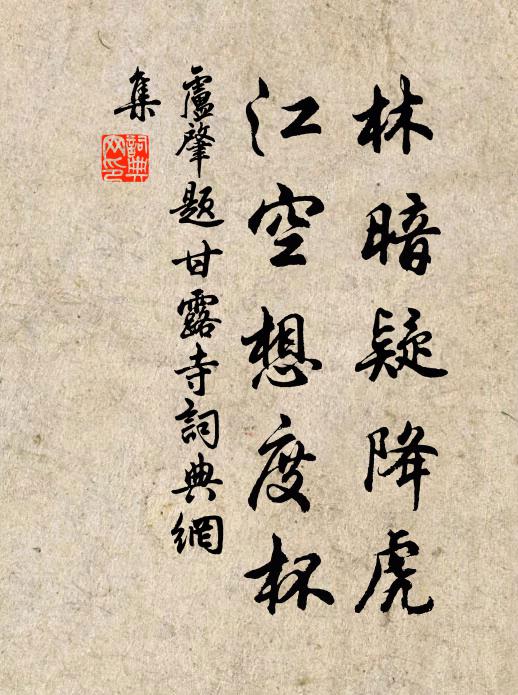 林暗疑降虎
江空想度杯
盧肇題甘露寺詞典網
集
詞典
网印